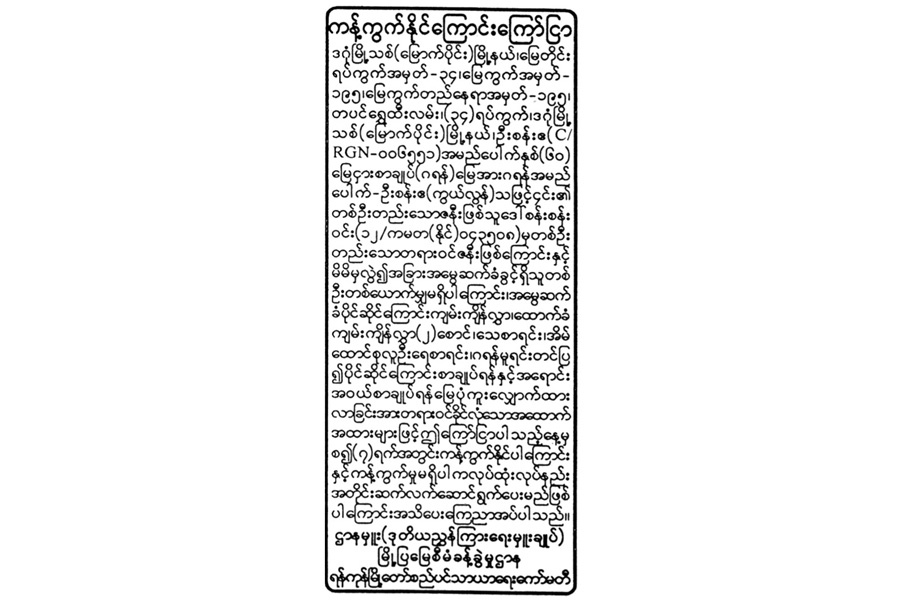 ကန့်ကွက်နိုင်ကြောင်းကြော်ငြာ
ဒဂုံမြို့သစ်(မြောက်ပိုင်း)မြို့နယ်၊မြေတိုင်း
ရပ်ကွက်အမှတ်-၃၄၊မြေကွက်အမှတ်-
၁၉၅၊မြေကွက်တည်နေရာအမှတ်-၁၉၅၊
တပင်ရွှေထီးလမ်း၊(၃၄)ရပ်ကွက်၊ဒဂုံမြို့
သစ်(မြောက်ပိုင်း)မြို့နယ်၊ဦးစန်းဧ(C/
RGN-၀၀၆၅၅၁)အမည်ပေါက်နှစ်(၆၀)
မြေငှားစာချုပ်(ဂရန်)မြေအားဂရန်အမည်
ပေါက်-ဦးစန်းဧ(ကွယ်လွန်)သဖြင့်၎င်း၏
တစ်ဦးတည်းသောဇနီးဖြစ်သူဒေါ်စန်းစန်း
ဝင်း(၁၂/ကမတ(နိုင်)၀၄၃၅၀၈)မှတစ်ဦး
တည်းသောတရားဝင်ဇနီးဖြစ်ကြောင်းနှင့်
မိမိမှလွဲ၍အခြားအမွေဆက်ခံခွင့်ရှိသူတစ်
ဦးတစ်ယောက်မျှမရှိပါကြောင်း၊အမွေဆက်
ခံပိုင်ဆိုင်ကြောင်းကျမ်းကျိန်လွှာ၊ထောက်ခံ
ကျမ်းကျိန်လွှာ(၂)စောင်၊သေစာရင်း၊အိမ်
ထောင်စုလူဦးရေစာရင်း၊ဂရန်မူရင်းတင်ပြ
၍ပိုင်ဆိုင်ကြောင်းစာချုပ်ရန်နှင့်အရောင်း
အဝယ်စာချုပ်ရန်မြေပုံကူးလျှောက်ထား
လာခြင်းအားတရားဝင်ခိုင်လုံသောအထောက်
အထားများဖြင့်ဤကြော်ငြာပါသည့်နေ့မှ
စ၍(၇)ရက်အတွင်းကန့်ကွက်နိုင်ပါကြောင်း
နှင့်ကန့်ကွက်မှုမရှိပါကလုပ်ထုံးလုပ်နည်း
အတိုင်းဆက်လက်ဆောင်ရွက်ပေးမည်ဖြစ်
ပါကြောင်းအသိပေးကြေညာအပ်ပါသည်။
ဌာနမှူး(ဒုတိယညွှန်ကြားရေးမှူးချုပ်)
မြို့ပြမြေစီမံခန့်ခွဲမှုဌာန
ရန်ကုန်မြို့တော်စည်ပင်သာယာရေးကော်မတီ